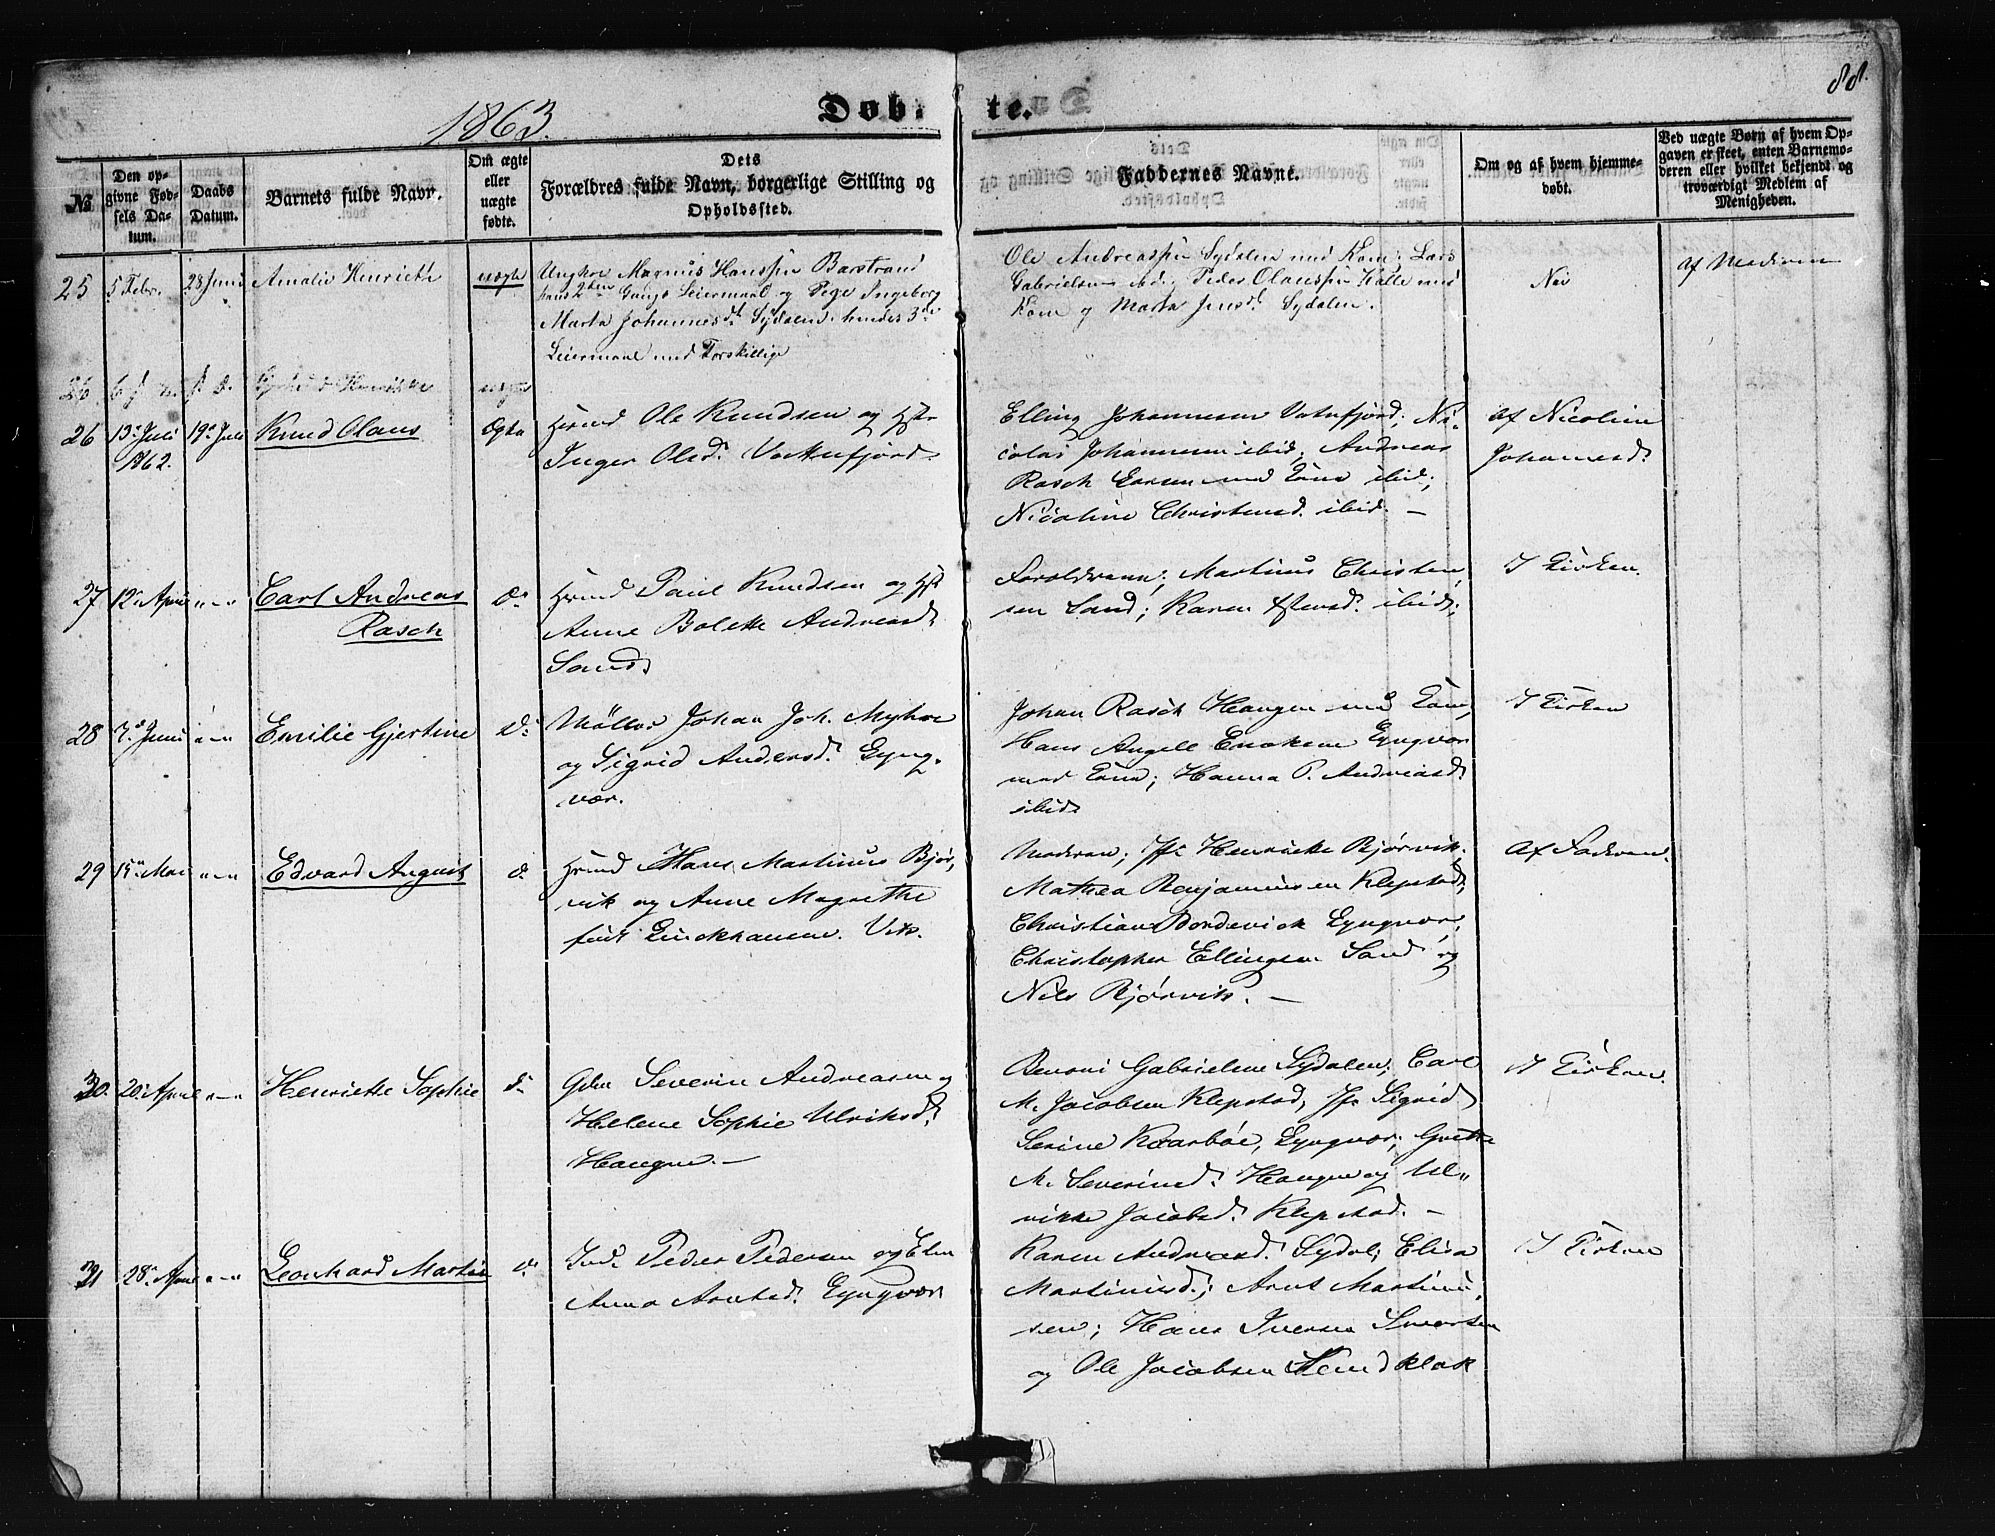 88.
1863.
Døb.
te.
№
Den op-
givne Fød-
sels Da-
tum.
Daabs
Datum.
Barnets fulde Navn.
Om ægte
eller
uægte
fødte.
Dets
Forældres fulde Navn, borgerlige Stilling og
Opholdssted.
Faddernes Navne.
Om og af hvem hjemme-
døbt.
Ved uægte Børn af hvem Op-
gaven er skeet, enten Barnemo-
deren eller hvilket bekjendt og
troværdigt Medlem af
Menigheden.
25 5 Febr. 28 Juni Amalie Henriette uægte
Ungkrl Magnus Hanssen Barstrand
hans 2den Gangs Leiermaal og Pige Ingeborg
Marta Johannesdr Sydalen hendes 3die
Leiermaal med Forskillige
Ole Andreassen Sydalen med Kone; Lars
Gabrielsen ibd; Peder Olaussen Kalle med
Kone og Marta Jensdr Sydalen.
Nei
af Moderen
26 Henrikke uægte
26 13de Juli 1862. 19de Juli Knud Olaus Ægte
Hrmd Ole Knudsen og Hstr
Inger Olsdr Vatnfjord
Elling Johannesen Vatnfjord; Ni-
colai Johannesen ibid; Andreas
Rasch Larsen med Kone ibid;
Nicoline Christensd. ibid. —
Af Nicoline
Johannesd.
27 12te April — Carl Andreas
Rasch do
Hrmd Paul Knudsen og Hst
Anne Bolette Andreasdr
Sand.
Forældrene; Martinus Christen-
sen Sand; Karen ibid;
I Kirken.
28 7de Juni — Emilie Gjertine do
Møller Johan Joh. Myhre
og Sigrid Andersd. Lyng-
vær.
Johan Rasch Haugen med Kone,
Hans Angell Enoksen Lyngvær
med Kone; Hanna P. Andreasd.
ibid.
I Kirken
29 15de Mai — Edvard August do
Hrmd Hans Martinus Bjør-
vik og Anne Magrethe
født Linckhausen. Vik.
Moderen; Jfr Henrikke Bjørvik.
Mathea Benjaminsen Klepstad,
Christiane Dordevick Lyngvær;
Christopher Ellingsen Sand og
Nils Bjørvik. —
Af Faderen.
30. 20de April — Henriette Sophie do
Gbr Severin Andreasen og
Helene Sophie Ulriksdr
Haugen. —
Benoni Gabrielsen Sydalen; Carl
M. Jacobsen Klepstad, Jfr Sigrid
Serine Kaarbøe, Lyngvær; Grethe
M. Severinsd. Haugen og Ul-
rikke Jacobsd. Klepstad. —
I Kirken.
31 28de April — Leonhard Martin do
Inds Peder Pedersen og Elen
Anna Arntsd. Lyngvær
Karen Andreasd. Sydal; Elisa
Martinusd.; Arnt Martinu-
sen; Hans Iversen Smorten
og Ole Jacobsen
I Kirken